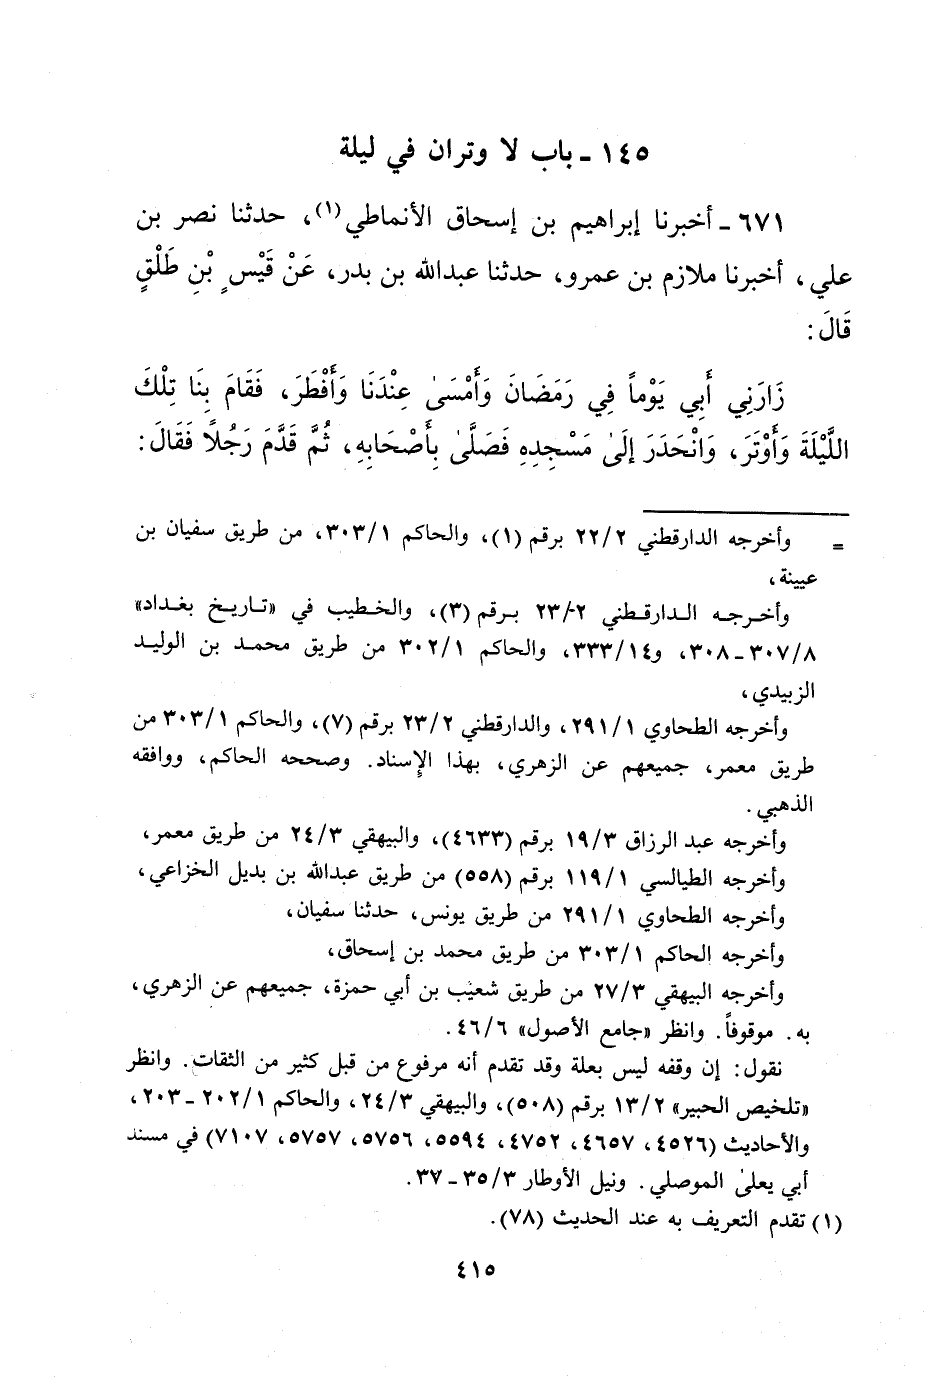 ١٤٥ - باب لا وتران في ليلة
٦٧١ - أخبرنا إبراهيم بن إسحاق الأنماطي(١)، حدثنا نصر بن
علي، أخبرنا ملازم بن عمرو، حدثنا عبدالله بن بدر، عَنْ قَيْسِ بْنِ طَلْقٍ
قَالَ:
زَارَنِي أَبِي يَوْماً فِي رَمَضَانَ وَأَمْسَىٰ عِنْدَنَا وَأَفْطَرَ، فَقَامَ بِنَا تِلْكَ
اللَّيْلَةَ وَأَوْتَرَ، وَانْحَدَرَ إِلَىٰ مَسْجِدِهِ فَصَلَّىٰ بِأَصْحَابِهِ، ثُمَّ قَدَّمَ رَجُلاً فَقَالَ:
= وأخرجه الدارقطني ٢٢/٢ برقم (١)، والحاكم ٣٠٣/١، من طريق سفيان بن
عيينة،
وأخرجه الدارقطني ٢٣/٢ برقم (٣)، والخطيب في «تاريخ بغداد»
٣٠٧/٨ - ٣٠٨، و٣٣٣/١٤، والحاكم ٣٠٢/١ من طريق محمد بن الوليد
الزبيدي،
وأخرجه الطحاوي ٢٩١/١، والدارقطني ٢٣/٢ برقم (٧)، والحاكم ٣٠٣/١ من
طريق معمر، جميعهم عن الزهري، بهذا الإسناد. وصححه الحاكم، ووافقه
الذهبي.
وأخرجه عبد الرزاق ١٩/٣ برقم (٤٦٣٣)، والبيهقي ٢٤/٣ من طريق معمر،
وأخرجه الطيالسي ١١٩/١ برقم (٥٥٨) من طريق عبدالله بن بديل الخزاعي،
وأخرجه الطحاوي ٢٩١/١ من طريق يونس، حدثنا سفيان،
وأخرجه الحاكم ٣٠٣/١ من طريق محمد بن إسحاق،
وأخرجه البيهقي ٢٧/٣ من طريق شعيب بن أبي حمزة، جميعهم عن الزهري،
به. موقوفاً. وانظر «جامع الأصول» ٤٦/٦.
نقول: إن وقفه ليس بعلة وقد تقدم أنه مرفوع من قبل كثير من الثقات. وانظر
«تلخيص الحبير» ١٣/٢ برقم (٥٠٨)، والبيهقي ٢٤/٣، والحاكم ٢٠٢/١ - ٢٠٣،
والأحاديث (٤٥٢٦، ٤٦٥٧، ٤٧٥٢، ٥٥٩٤، ٥٧٥٦، ٥٧٥٧، ٧١٠٧) في مسند
أبي يعلىٰ الموصلي. ونيل الأوطار ٣٥/٣ - ٣٧.
(١) تقدم التعريف به عند الحديث (٧٨).
٤١٥